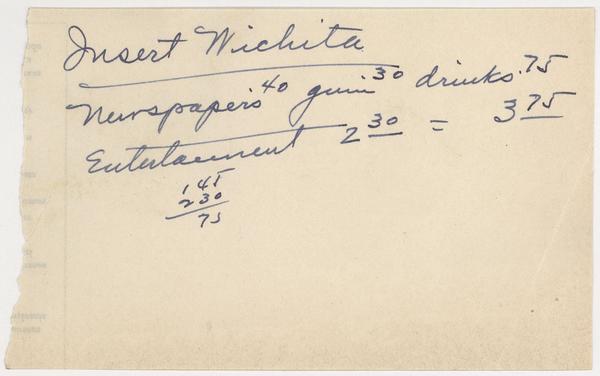 Insert Wichita
Newspapers 40 gum 30 drinks .75
Entertainment 2 30 = 3 75
1 45
2 30
75